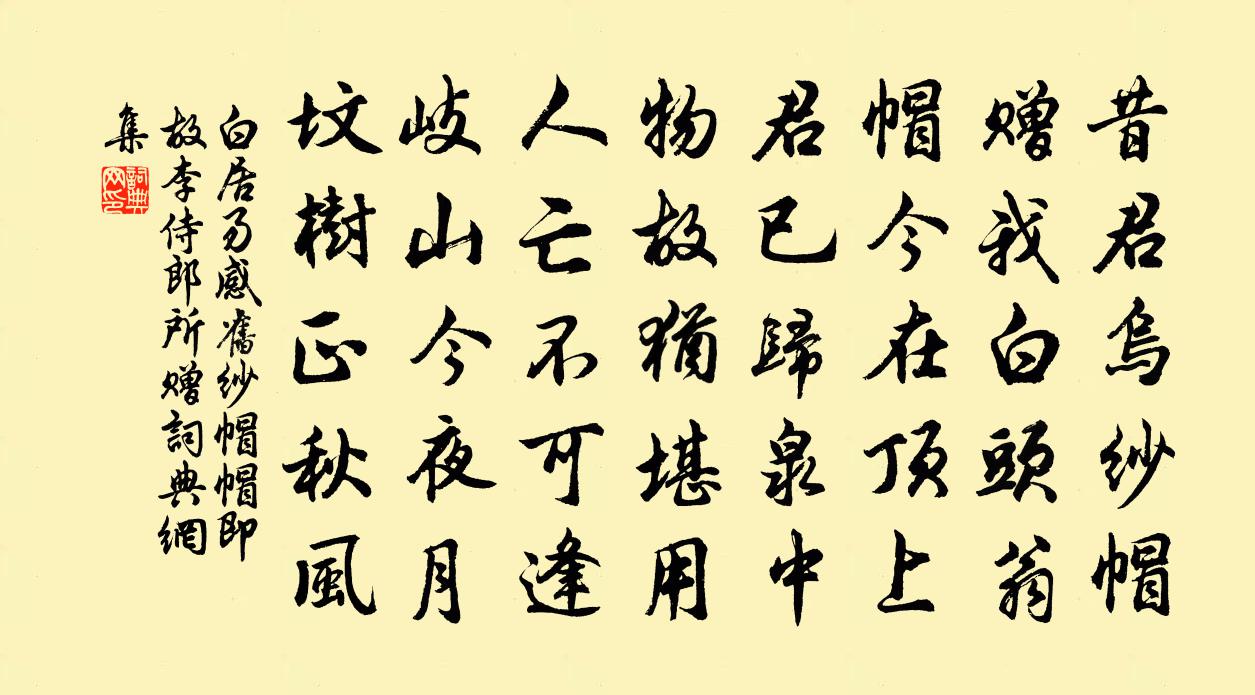 昔君烏紗帽
贈我白頭翁
帽今在頂上
君已歸泉中
物故猶堪用
人亡不可逢
岐山今夜月
墳樹正秋風
白居易感舊紗帽帽即
故李侍郎所贈詞典網
集
詞典網印